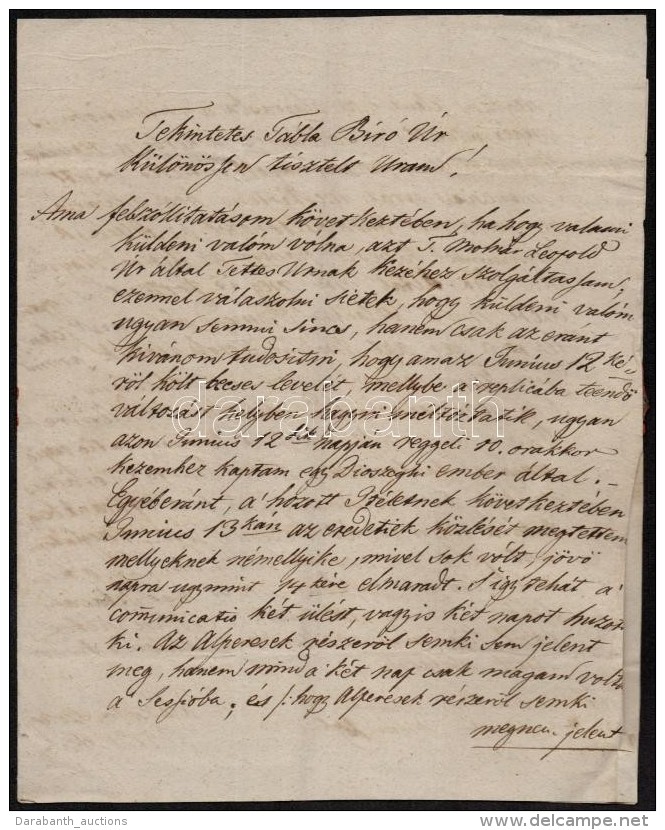 Tekintetes Tábla Biró Úr
különössen tisztelt Uram!
Ama felszóllitatásom következtében, ha hogy valami
küldeni valóm vólna, azt T. Leopold
Úr által Tettes Urnak kezéhez szolgáltassam,
ezennel válaszolni sietek, hogy küldeni valóm
ugyan semmi sincs, hanem csak az eránt
kivánom tudositni, hogy ama Junius 12 ké-
ről költ becses levelét, mellybe a replicába teendő
változást helyben hagyni méltóztatik, ugyan
azon Junius 12dik napján reggeli 10. orakkor
kezemhez kaptam egy Dioszeghi ember által. -
Egyéberánt, a' hozott Itéletnek következtében
Junius 13kán az eredetiek közlését megtettem
mellyeknek némellyike, mivel sok volt, jövő
napra ugymint 14kére elmaradt. S igy tehát a'
communicatio két ülést, vagyis két napot huzott
ki. Az Alperesek részéről semki sem jelent
meg, hanem mind a' két nap csak magam voltam
a Sessióba; és /: hogy Alperesek részéről semki
megnem jelent
Darabanth_auctions
www.delcampe.net